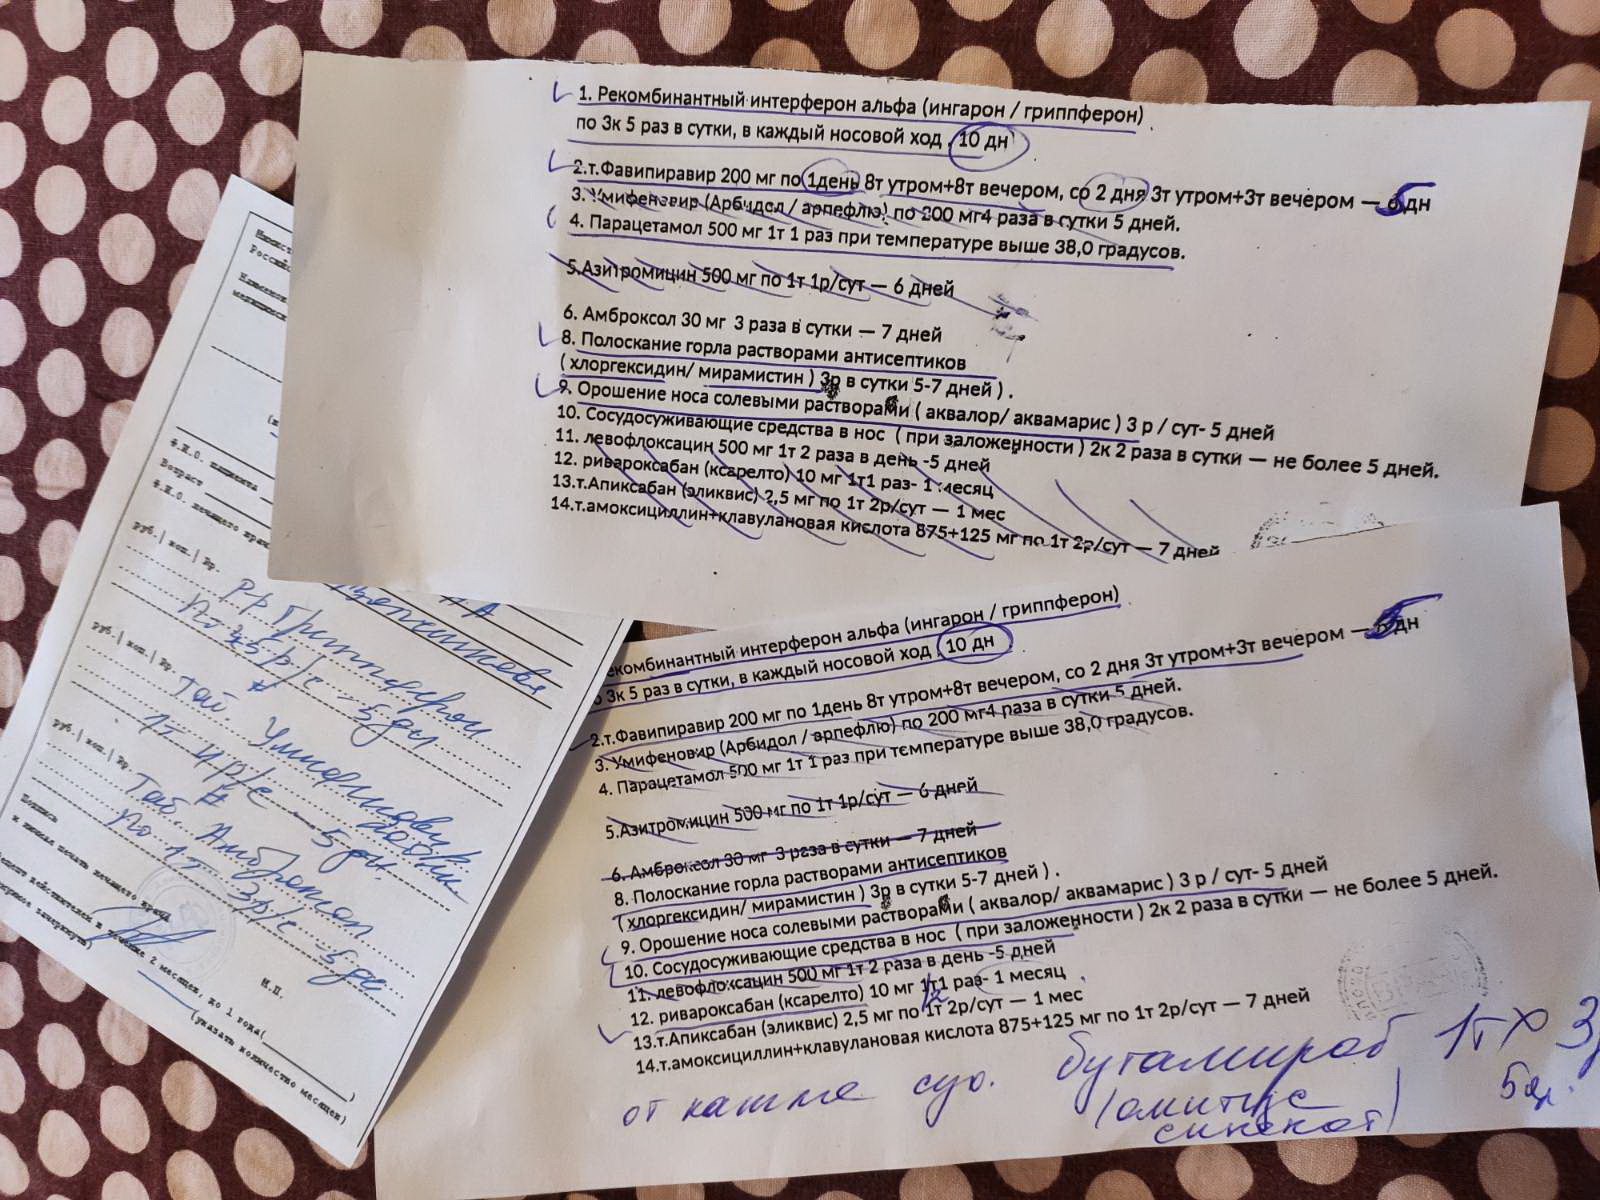 1. Рекомбинантный интерферон альфа (ингарон / гриппферон)
по 3к 5 раз в сутки, в каждый носовой ход . 10 дн
2.т.Фавипиравир 200 мг по 1день 8т утром+8т вечером, со 2 дня 3т утром+3т вечером — 5 дн
3. Умифеновир (Арбидол / арпефлю) по 200 мг4 раза в сутки 5 дней.
4. Парацетамол 500 мг 1т 1 раз при температуре выше 38,0 градусов.
5.Азитромицин 500 мг по 1т 1р/сут — 6 дней
6. Амброксол 30 мг 3 раза в сутки — 7 дней
8. Полоскание горла растворами антисептиков
( хлоргексидин/ мирамистин ) 3р в сутки 5-7 дней ) .
9. Орошение носа солевыми растворами ( аквалор/ аквамарис ) 3 р / сут- 5 дней
10. Сосудосуживающие средства в нос ( при заложенности ) 2к 2 раза в сутки — не более 5 дней.
11. левофлоксацин 500 мг 1т 2 раза в день -5 дней
12. ривароксабан (ксарелто) 10 мг 1т1 раз- 1 месяц
13.т.Апиксабан (эликвис) 2,5 мг по 1т 2р/сут — 1 мес
14.т.амоксициллин+клавулановая кислота 875+125 мг по 1т 2р/сут — 7 дней
екомбинантный интерферон альфа (ингарон / гриппферон)
3к 5 раз в сутки, в каждый носовой ход . 10 дн
2.т.Фавипиравир 200 мг по 1день 8т утром+8т вечером, со 2 дня 3т утром+3т вечером — 5 дн
3. Умифеновир (Арбидол / арпефлю) по 200 мг4 раза в сутки 5 дней.
4. Парацетамол 500 мг 1т 1 раз при температуре выше 38,0 градусов.
5.Азитромицин 500 мг по 1т 1р/сут — 6 дней
6. Амброксол 30 мг 3 раза в сутки — 7 дней
8. Полоскание горла растворами антисептиков
( хлоргексидин/ мирамистин ) 3р в сутки 5-7 дней ) .
9. Орошение носа солевыми растворами ( аквалор/ аквамарис ) 3 р / сут- 5 дней
10. Сосудосуживающие средства в нос ( при заложенности ) 2к 2 раза в сутки — не более 5 дней.
11. левофлоксацин 500 мг 1т 2 раза в день -5 дней
12. ривароксабан (ксарелто) 10 мг 1т1 раз- 1 месяц
13.т.Апиксабан (эликвис) 2,5 мг по 1т 2р/сут — 1 мес
14.т.амоксициллин+клавулановая кислота 875+125 мг по 1т 2р/сут — 7 дней
от кашля сух. бутамират 1т х 3
(омнитус
синекот)
5 дн.
Ф.И.О. пациента
Возраст
Ф.И.О. лечащего врача
руб.| коп.| Rp.
Р-р Гриппферон
5 р/с - 5 дн
руб.| коп.| Rp.
Таб. Умифеновир
200мг
1т 4р/с - 5 дн.
руб.| коп.| Rp.
Таб. Амброксол
по 1т 3р/с - 5 дн
Подпись
и личная печать лечащего врача
М.П.
Рецепт действителен в течение 2 месяцев, до 1 года(
(ненужное зачеркнуть)
(указать количество месяцев)